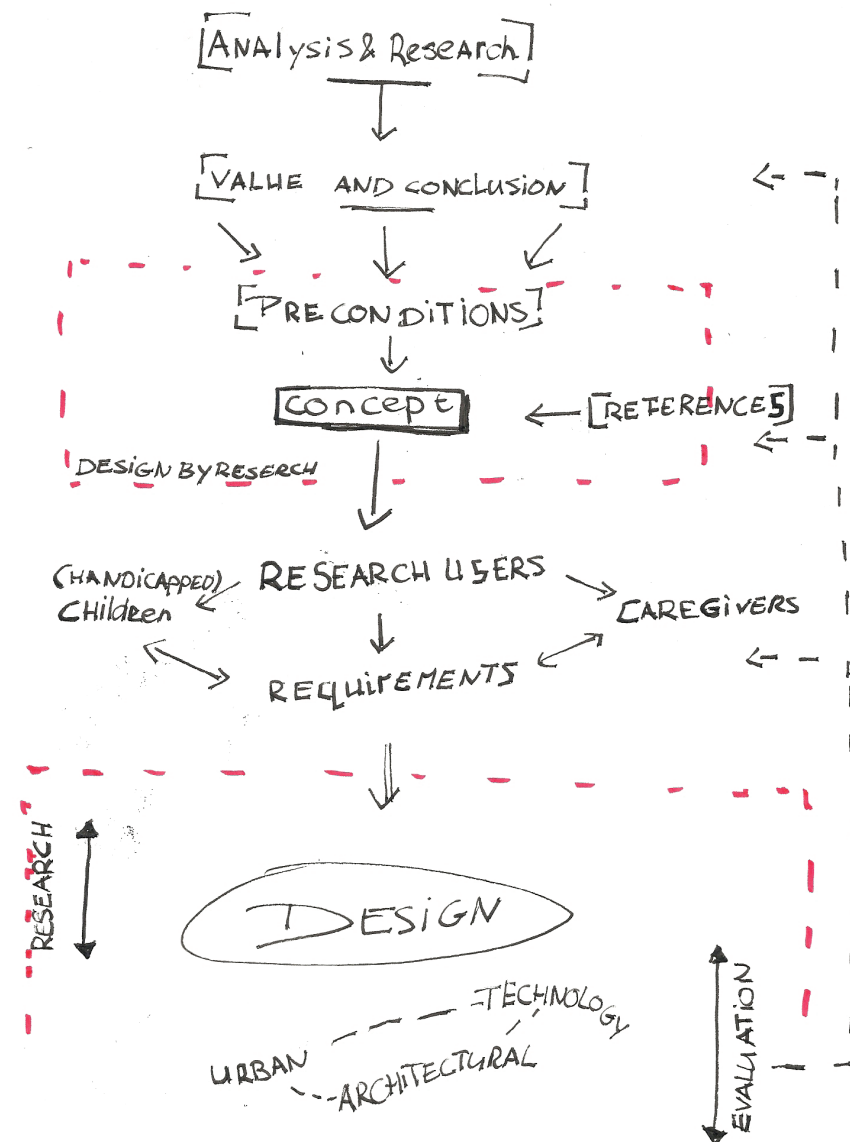 [ANAlysis & Research]
[VALUE AND CONCLUSION]
[PRECONDITIONS]
concept
[REFERENCES]
DESiGN BY RESERCH
RESEARCH USERS
(HANDiCAPPED)
CHildRen
CAREGiVERS
REquirEMENTS
RESEARCH
DESiGN
TECHNOLOGY
URBAN
ARCHiTECTURAL
EVALUATiON